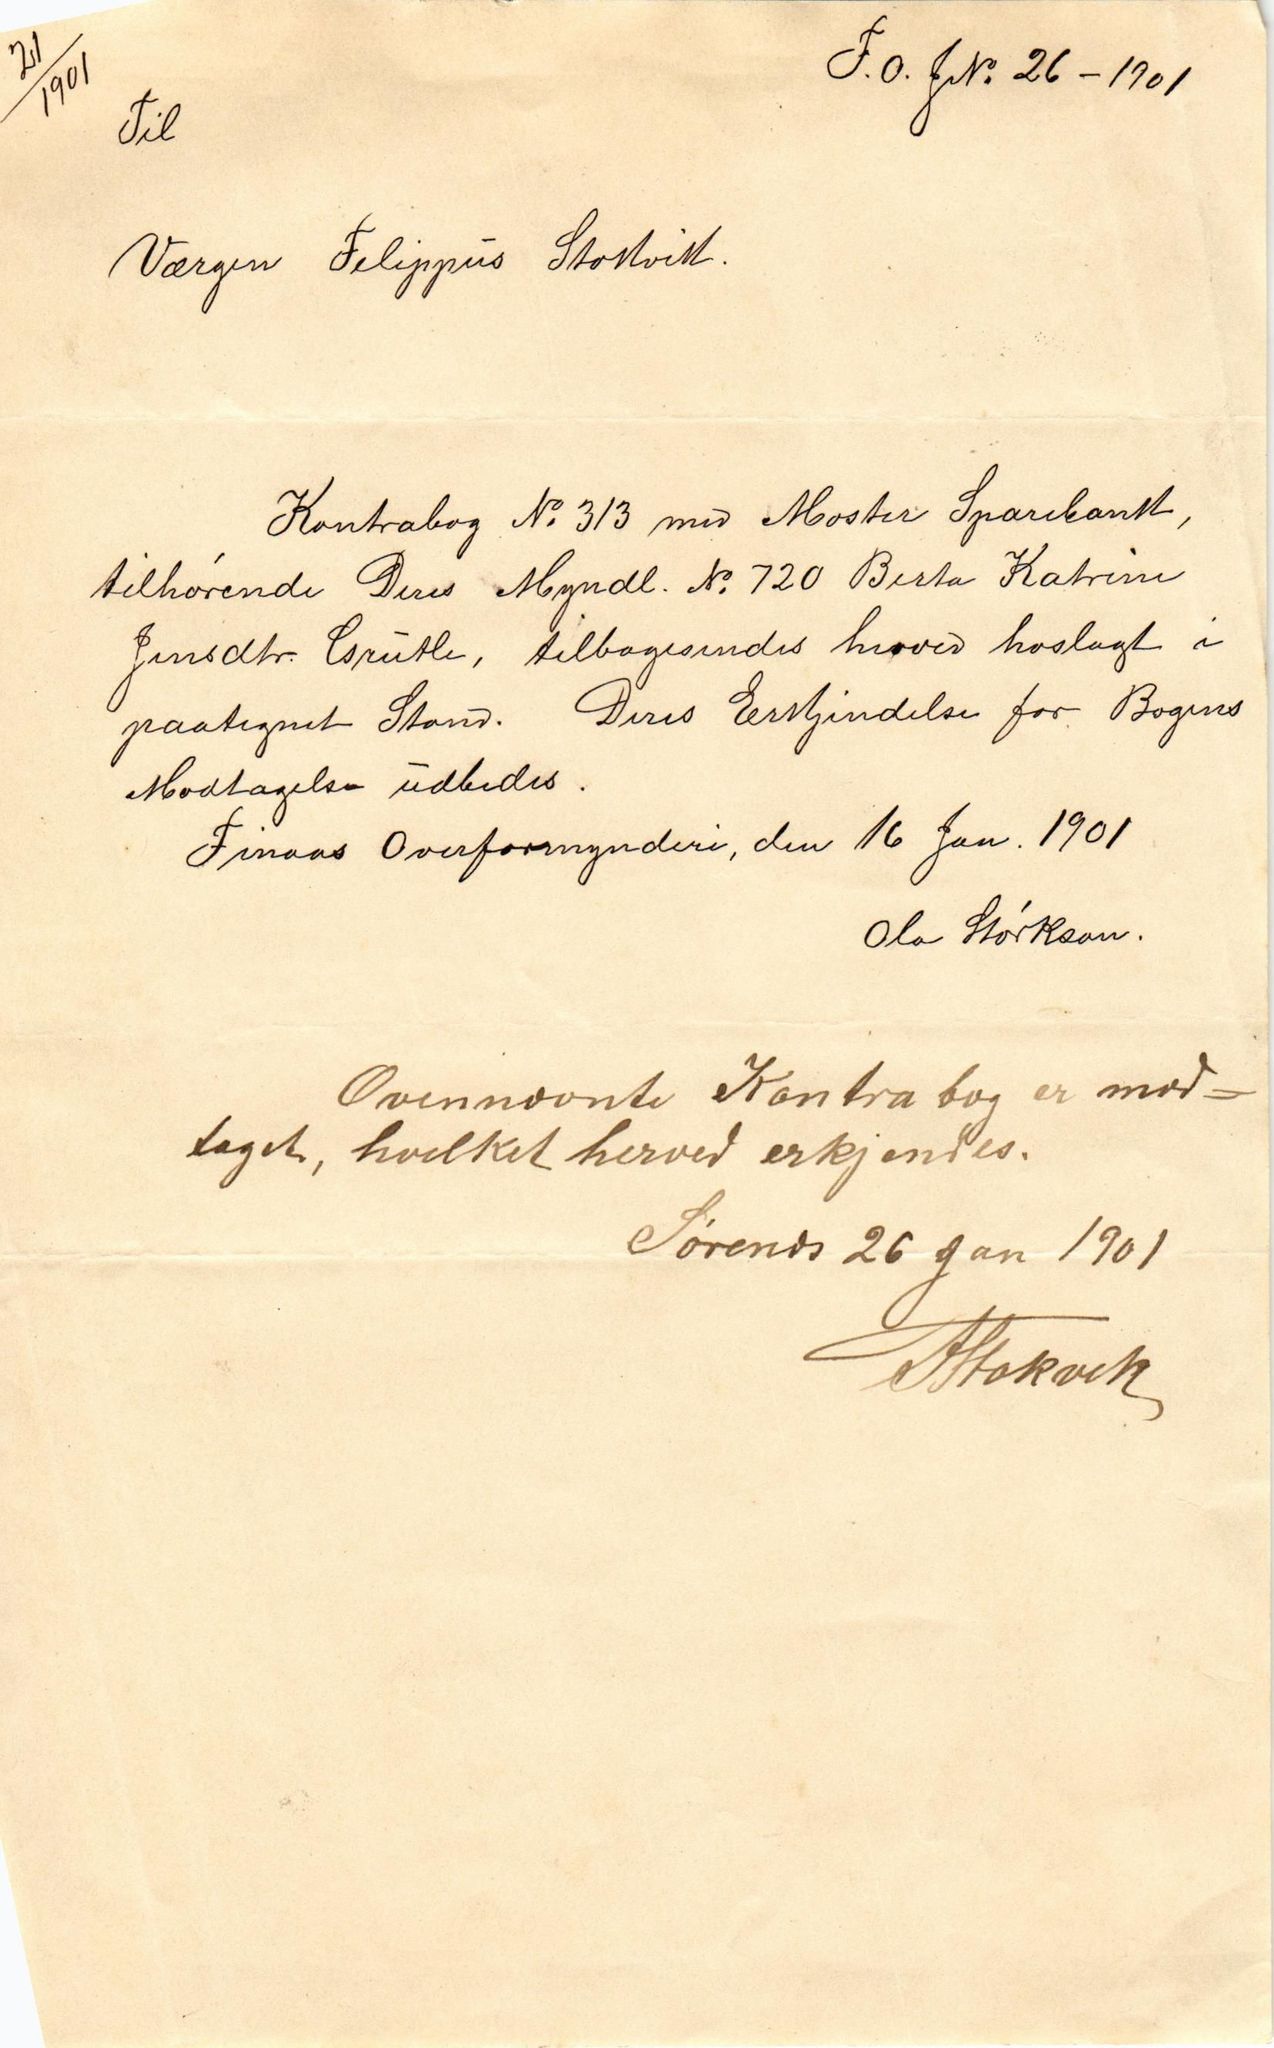 21/1901
F.O. J.No. 26 - 1901
Til
Værgen Felippus Stokvik.
Kontrabog No. 313 med Moster Sparebank,
tilhørende Deres Myndl. No. 720 Berta Katrine
Jensdtr. Grutle, tilbagesendes herved hoslagt i
paategnet Stand. Deres Erkjendelse for Bogens
Modtagelse udbedes.
Finaas Overformynderi, den 16 Jan. 1901
Ola Størkson.
Ovennævnte Kontrabog er mod=
taget, hvilket herved erkjendes.
26 Jan 1901
FStokvik